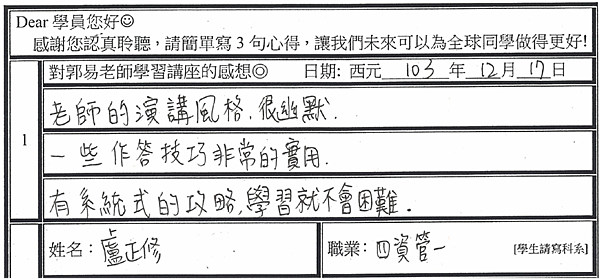 Dear 學員您好☺
感謝您認真聆聽，請簡單寫 3 句心得，讓我們未來可以為全球同學做得更好!
對郭易老師學習講座的感想◎ 日期: 西元 103 年 12 月 17 日
1
老師的演講風格,很幽默.
一些作答技巧非常的實用.
有系統式的攻略,學習就不會困難.
姓名: 盧正修 職業: 四資管一 [學生請寫科系]